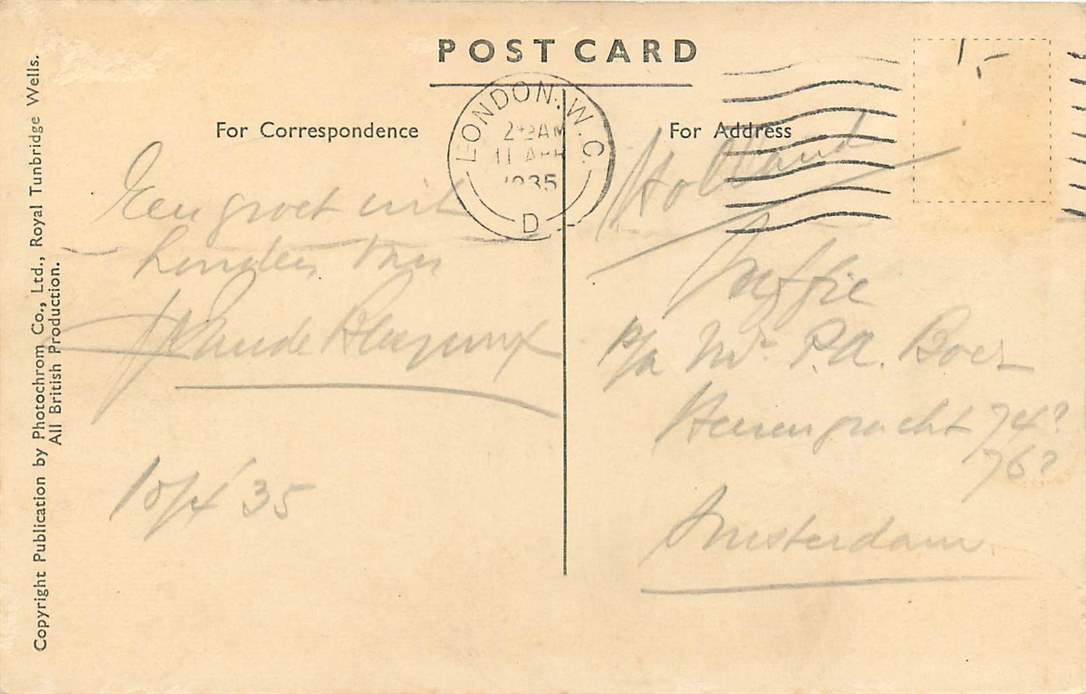 POST CARD
For Correspondence
For Address
LONDON. W.C.
AM
11 APR
1935
D
1,-
Een groet uit
Londen van
10/4 '35
Holland
p/a Mr P.A. Boer
Heerengracht 74?
76?
Amsterdam
Copyright Publication by Photochrom Co., Ltd., Royal Tunbridge Wells.
All British Production.